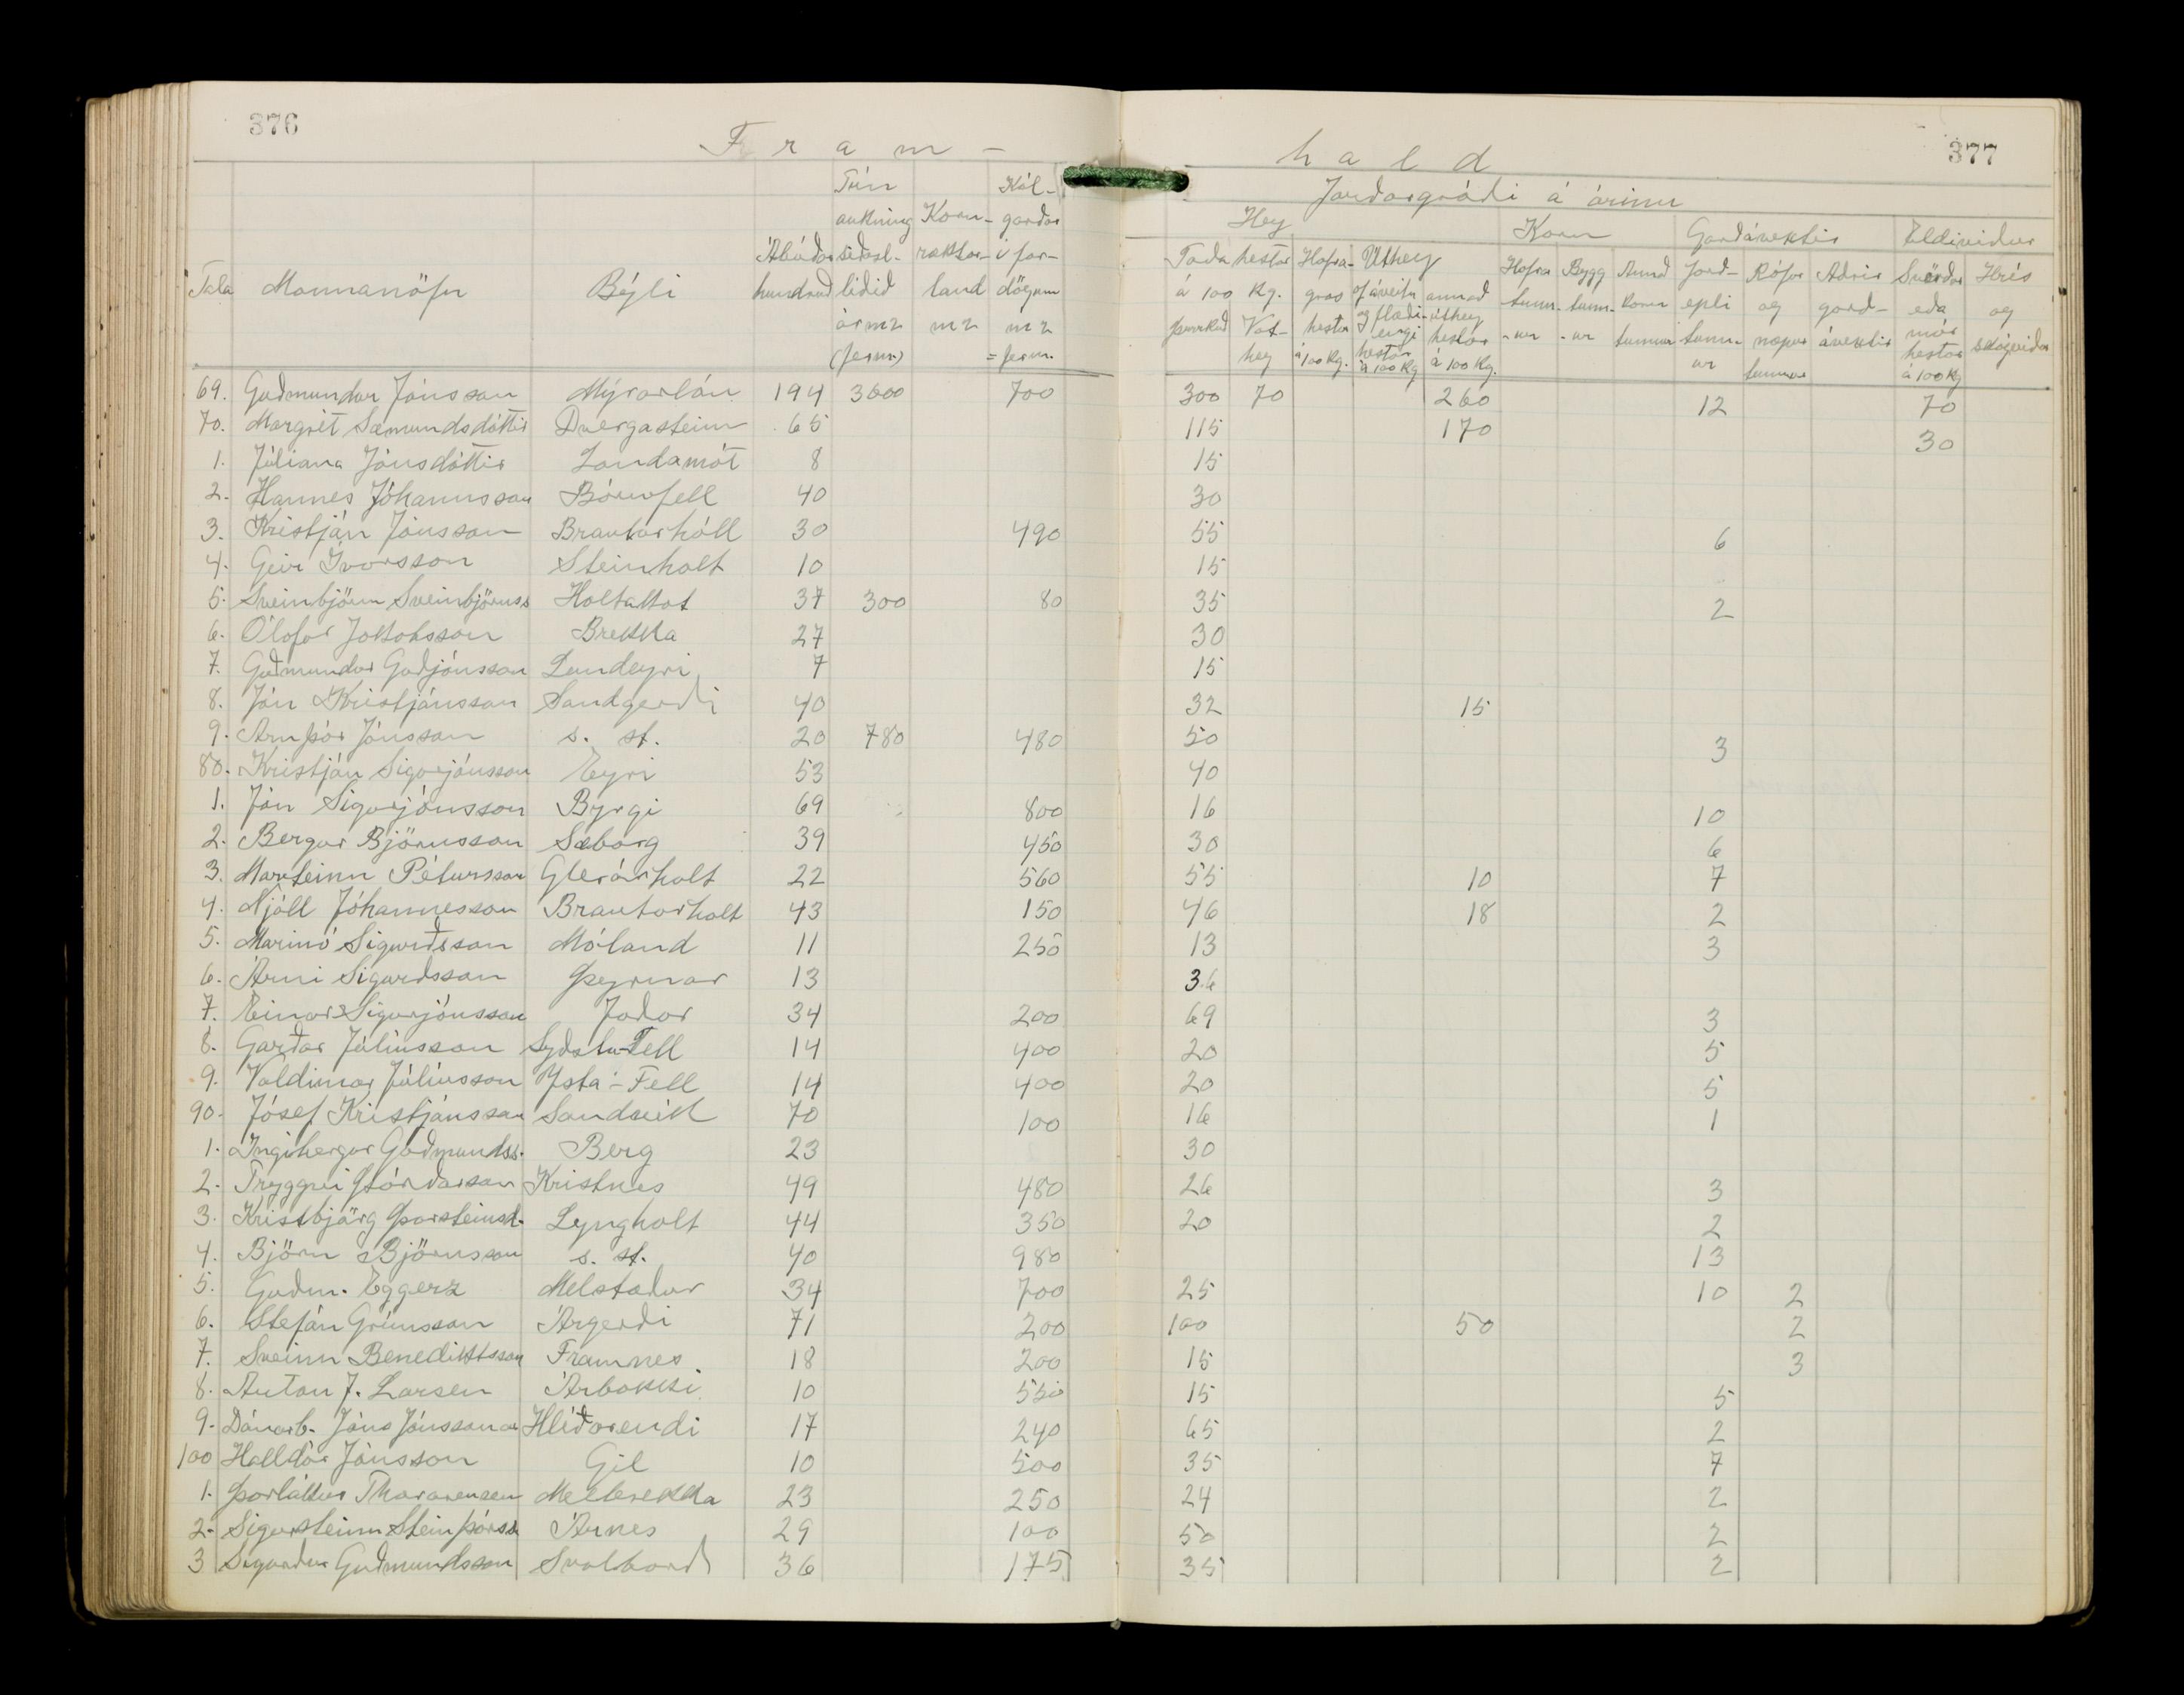 376
377
F r a m -
h a l d
Jarðargróði á árinu
Tala
Mannanöfn
Býli
Ábúðar hundruð
Tún aukning síðastliðið ár m2 (ferm.)
Korn- raktar- land m2
Kál- garðar í far- dögum m2 = ferm.
Hey
Taða hestar á 100 kg.
þurrkuð
Vot- hey
Hafra- gras hestar á 100 kg.
Úthey
af áveitu og flæði- engi hestar á 100 kg
annað úthey hestar á 100 kg.
Korn
Hafra tunn- ur
Bygg tunn- ur
Annað korn tunnur
Garðávextir
Jarð- epli tunn- ur
Rófur og næpur tunnur
Aðrir garð- ávextir
Eldiviður
Svörður eða mór hestar á 100 kg
Hrís og skógviður
69. Guðmundur Jónsson Mýrarlón 194 3600 700 300 70 260 12 70
70. Margrét Sæmundsdóttir Dvergasteinn 65 115 170 30
1. Júliana Jónsdóttir Landamót 8 15
2. Hannes Jóhannsson Bárufell 40 30
3. Kristján Jónsson Brautarhóll 30 490 55 6
4. Geir Ívarsson Steinholt 10 15
5. Sveinbjörn Sveinbjörnss Holtakot 37 300 80 35 2
6. Ólafur Jakobsson Brekka 27 30
7. Guðmundur Guðjónsson Lundeyri 7 15
8. Jón Kristjánsson Sandgerði 40 32 15
9. Arnþór Jónsson s. st. 20 780 480 50 3
80. Kristján Sigurjónsson Eyri 53 40
1. Jón Sigurjónsson Byrgi 69 800 16 10
2. Bergur Björnsson Sæborg 39 450 30 6
3. Marteinn Pétursson Glerárholt 22 560 55 10 7
4. Njáll Jóhannesson Brautarholt 43 150 46 18 2
5. Marinó Sigurðsson Móland 11 250 13 3
6. Árni Sigurðsson Þyrnar 13 36
7. Einar Sigurjónsson Jaðar 34 200 69 3
8. Garðar Júlíusson Syðsta-Fell 14 400 20 5
9. Valdimar Júlíusson Ysta-Fell 14 400 20 5
90. Jósef Kristjánsson Sandvík 70 100 16 1
1. Ingibergur Guðmundss. Berg 23 30
2. Tryggvi Þórðarson Kristnes 49 480 26 3
3. Kristbjörg Þorsteinsd. Lyngholt 44 350 20 2
4. Björn Björnsson s. st. 40 980 13
5. Guðm. Eggerz Melstaður 34 700 25 10 2
6. Stefán Grímsson Árgerði 71 200 100 50 2
7. Sveinn Benediktsson Framnes 18 200 15 3
8. Anton J. Larsen Árbakki 10 550 15 5
9. Dánarb. Jóns Jónssonar Hlíðarendi 17 240 65 2
100 Halldór Jónsson Gil 10 500 35 7
1. Þorlákur Thorarensen Melbrekka 23 250 24 2
2. Sigursteinn Steinþórss Árnes 29 100 50 2
3 Sigurður Guðmundsson Svalbarð 36 175 35 2